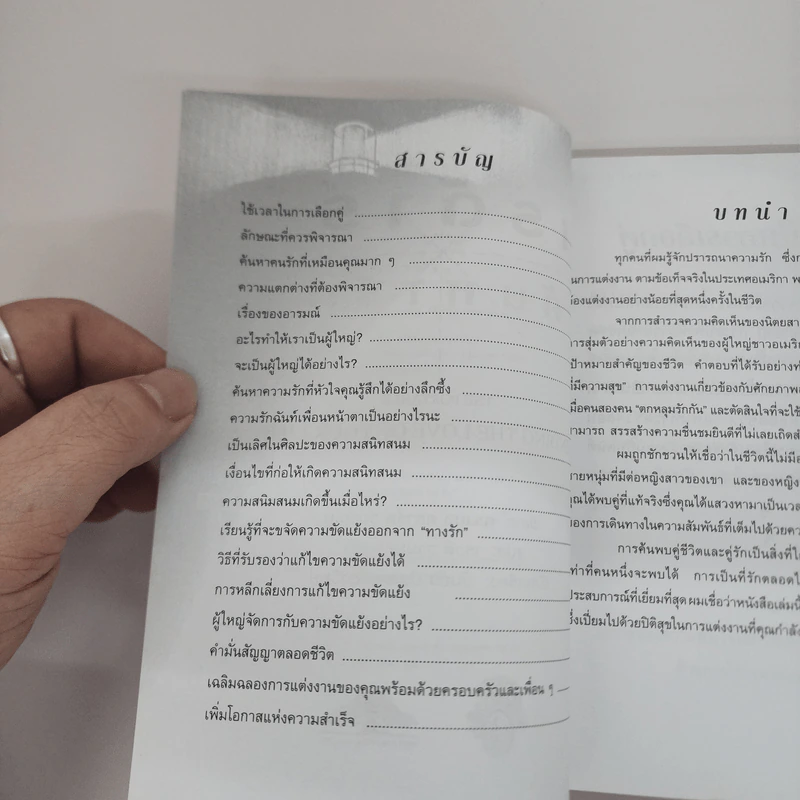 สารบัญ
ใช้เวลาในการเลือกคู่
ลักษณะที่ควรพิจารณา
ค้นหาคนรักที่เหมือนคุณมาก ๆ
ความแตกต่างที่ต้องพิจารณา
เรื่องของอารมณ์
อะไรทำให้เราเป็นผู้ใหญ่?
จะเป็นผู้ใหญ่ได้อย่างไร?
ค้นหาความรักที่หัวใจคุณรู้สึกได้อย่างลึกซึ้ง
ความรักฉันท์เพื่อนหน้าตาเป็นอย่างไรนะ
เป็นเลิศในศิลปะของความสนิทสนม
เงื่อนไขที่ก่อให้เกิดความสนิทสนม
ความสนิมสนมเกิดขึ้นเมื่อไหร่?
เรียนรู้ที่จะขจัดความขัดแย้งออกจาก “ทางรัก”
วิธีที่รับรองว่าแก้ไขความขัดแย้งได้
การหลีกเลี่ยงการแก้ไขความขัดแย้ง
ผู้ใหญ่จัดการกับความขัดแย้งอย่างไร?
คำมั่นสัญญาตลอดชีวิต
เฉลิมฉลองการแต่งงานของคุณพร้อมด้วยครอบครัวและเพื่อน ๆ
เพิ่มโอกาสแห่งความสำเร็จ
บทนำ
ทุกคนที่ผมรู้จักปรารถนาความรัก ซึ่ง
นการแต่งงาน ตามข้อเท็จจริงในประเทศอเมริกา
ต้องแต่งงานอย่างน้อยที่สุดหนึ่งครั้งในชีวิต
จากการสำรวจความคิดเห็นของนิตยสา
ารสุ่มตัวอย่างความคิดเห็นของผู้ใหญ่ชาวอเมริ
ป้าหมายสำคัญของชีวิต คำตอบที่ได้รับอย่าง
มีความสุข” การแต่งงานเกี่ยวข้องกับศักยภาพ
มื่อคนสองคน “ตกหลุมรักกัน” และตัดสินใจที่จะใช้
ามารถ สรรสร้างความชื่นชมยินดีที่ไม่เลยเถิด
ผมถูกชักชวนให้เชื่อว่าในชีวิตนี้ไม่มี
ายหนุ่มที่มีต่อหญิงสาวของเขา และของหญิง
คุณได้พบคู่ที่แท้จริงซึ่งคุณได้แสวงหามาเป็นเวล
องการเดินทางในความสัมพันธ์ที่เต็มไปด้วย
การค้นพบคู่ชีวิตและคู่รักเป็นสิ่งที่
ท่าที่คนหนึ่งจะพบได้ การเป็นที่รักตลอด
ประสบการณ์ที่เยี่ยมที่สุด ผมเชื่อว่าหนังสือเล่มนี้
ซึ่งเปี่ยมไปด้วยปิติสุขในการแต่งงานที่คุณกำลัง